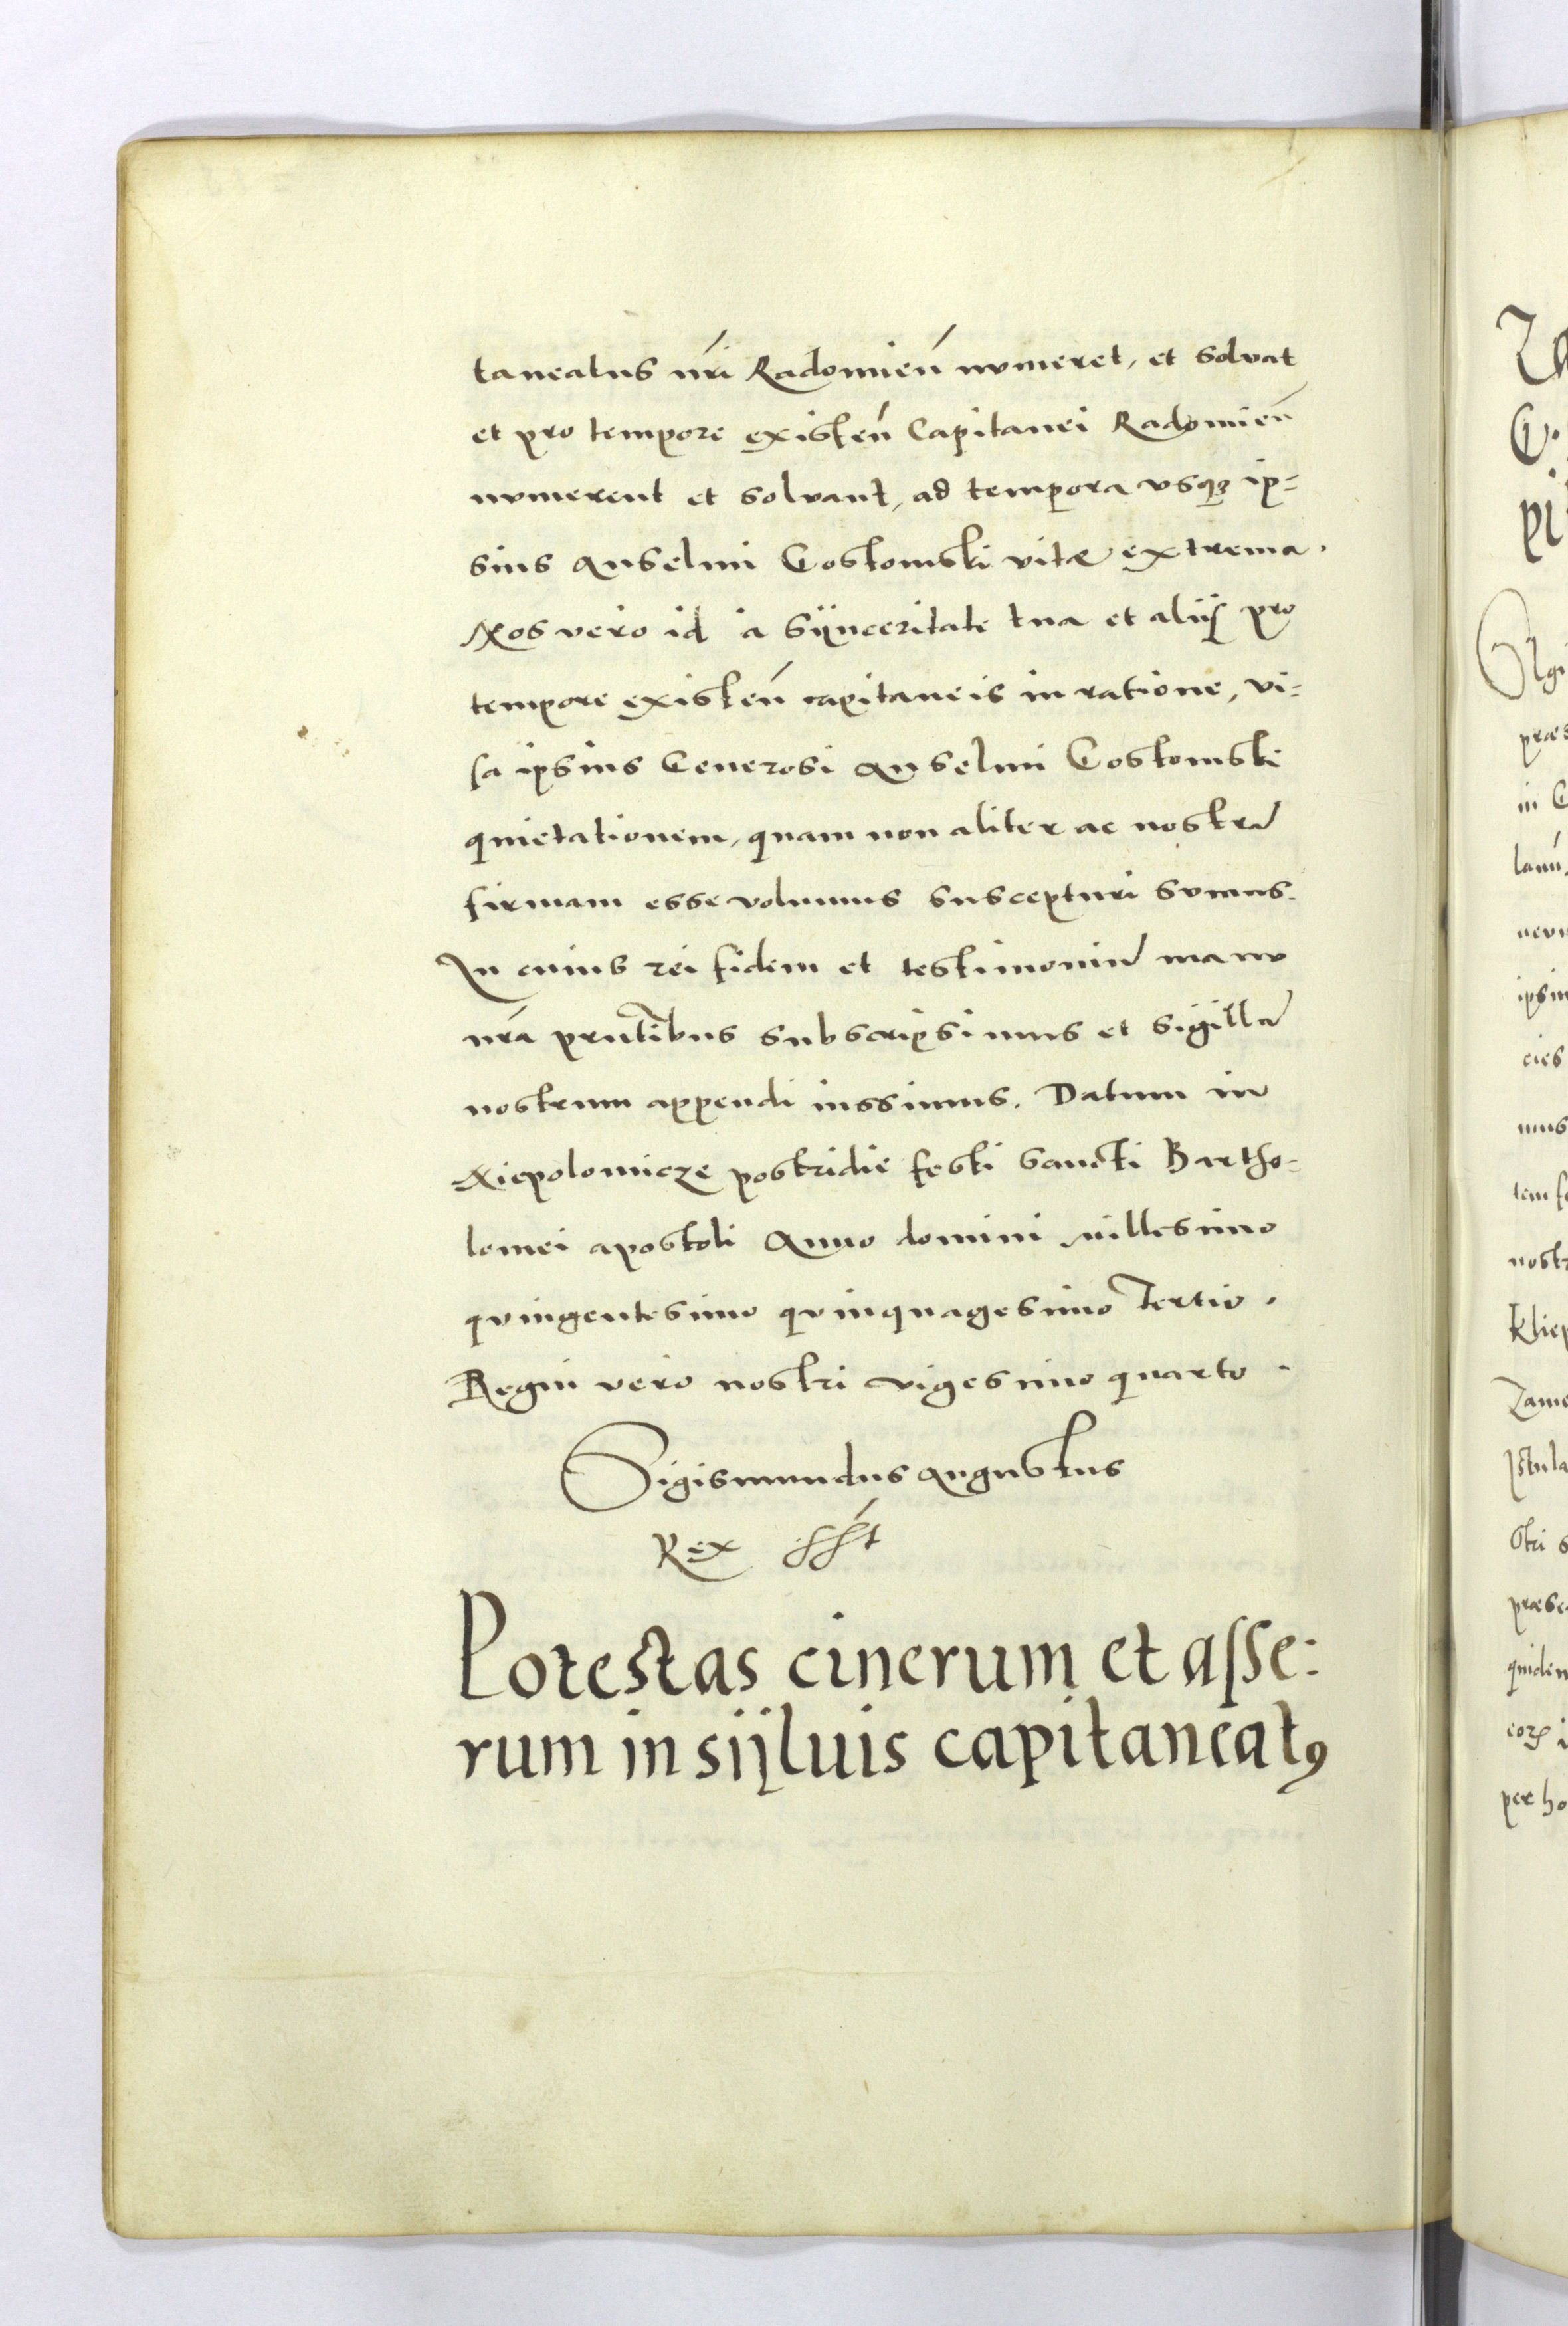 taneatus nr̃i Radomień numeret, et soluat
et pro tempore existeń Capitanei Radomień
numerent et soluant, ad tempora usq₃ ip=
sius Anselmi Gostomski vitæ extrema.
Nos vero id a sÿnceritate tua et aliis pro
tempore existeń capitaneis in ratione, vi=
sa ipsius Generosi Anselmi Gostomski
quietationem, quam non aliter ac nostrã
firmam esse volumus suscepturi sumus.
In cuius rei fidem et testimoniũ manu
nrã prñtibus subscripsimus et sigillũ
nostrum appendi iussimus. Datum in
Niepolomicze postridie festi Sancti Bartho=
lomei apostoli Anno domini millesimo
quingentesimo quinquagesimo Tertio.
Regni vero nostri vigesimo quarto.
Sigismundus Augustus
Rex sśt
Potestas cinerum et asse:
rum in sijluis capitaneatꝰ